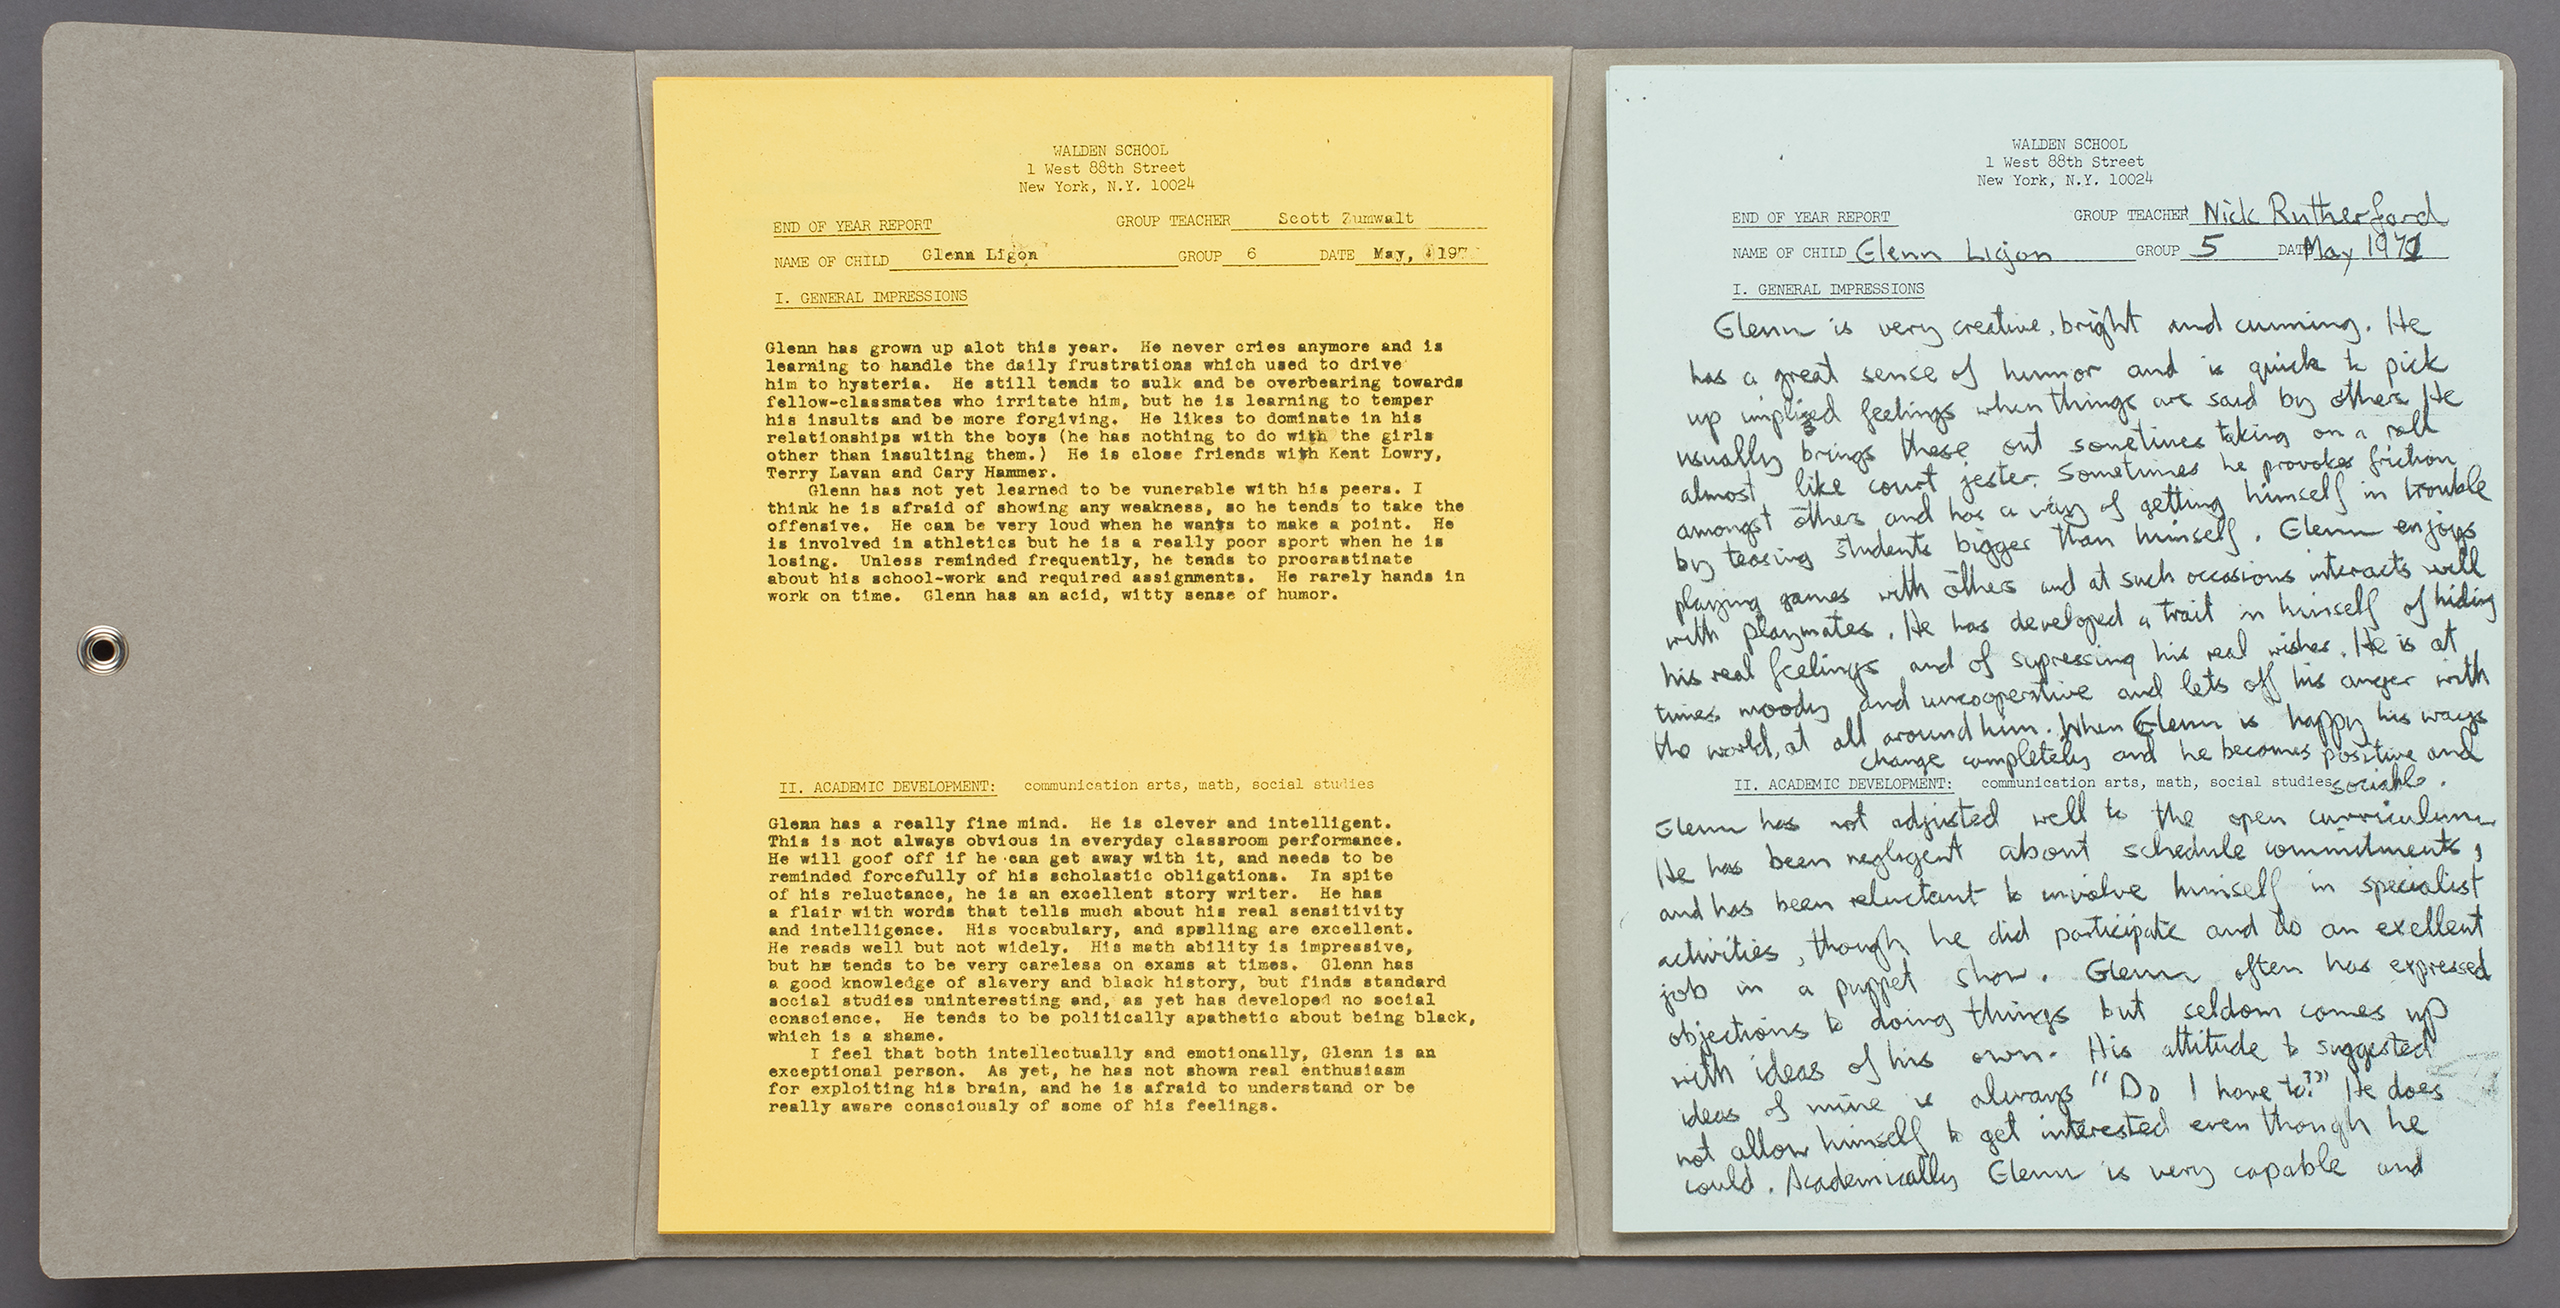 WALDEN SCHOOL
1 West 88th Street
New York, N.Y. 10024
END OF YEAR REPORT GROUP TEACHER Scott Zumwalt
NAME OF CHILD Glenn Ligon GROUP 6 DATE May, 197
I. GENERAL IMPRESSIONS
Glenn has grown up alot this year. He never cries anymore and is
learning to handle the daily frustrations which used to drive
him to hysteria. He still tends to sulk and be overbearing towards
fellow-classmates who irritate him, but he is learning to temper
his insults and be more forgiving. He likes to dominate in his
relationships with the boys (he has nothing to do with the girls
other than insulting them.) He is close friends with Kent Lowry,
Terry Lavan and Cary Hammer.
Glenn has not yet learned to be vunerable with his peers. I
think he is afraid of showing any weakness, so he tends to take the
offensive. He can be very loud when he wants to make a point. He
is involved in athletics but he is a really poor sport when he is
losing. Unless reminded frequently, he tends to procrastinate
about his school-work and required assignments. He rarely hands in
work on time. Glenn has an acid, witty sense of humor.
II. ACADEMIC DEVELOPMENT: communication arts, math, social studies
Glenn has a really fine mind. He is clever and intelligent.
This is not always obvious in everyday classroom performance.
He will goof off if he can get away with it, and needs to be
reminded forcefully of his scholastic obligations. In spite
of his reluctance, he is an excellent story writer. He has
a flair with words that tells much about his real sensitivity
and intelligence. His vocabulary, and spelling are excellent.
He reads well but not widely. His math ability is impressive,
but he tends to be very careless on exams at times. Glenn has
a good knowledge of slavery and black history, but finds standard
social studies uninteresting and, as yet has developed no social
conscience. He tends to be politically apathetic about being black,
which is a shame.
I feel that both intellectually and emotionally, Glenn is an
exceptional person. As yet, he has not shown real enthusiasm
for exploiting his brain, and he is afraid to understand or be
really aware consciously of some of his feelings.
WALDEN SCHOOL
1 West 88th Street
New York, N.Y. 10024
END OF YEAR REPORT GROUP TEACHER Nick Rutherford
NAME OF CHILD Glenn Ligon GROUP 5 DATE May 1971
I. GENERAL IMPRESSIONS
Glenn is very creative, bright and cunning. He
has a great sense of humor and is quick to pick
up implied feelings when things are said by others. He
usually brings these out sometimes taking on a roll
almost like court jester. Sometimes he provokes friction
amongst others and has a way of getting himself in trouble
by teasing students bigger than himself. Glenn enjoys
playing games with others and at such occasions interacts well
with playmates. He has developed a trait in himself of hiding
his real feelings and of supressing his real wishes. He is at
times moody and uncooperative and lets off his anger with
the world, at all around him. When Glenn is happy his ways
change completely and he becomes positive and
sociable.
II. ACADEMIC DEVELOPMENT: communication arts, math, social studies
Glenn has not adjusted well to the open curriculum
He has been neglegent about schedule commitments,
and has been reluctant to involve himself in specialist
activities, though he did participate and do an exellent
job in a puppet show. Glenn often has expressed
objections to doing things but seldom comes up
with ideas of his own. His attitude to suggested
ideas of mine is always "Do I have to?" He does
not allow himself to get interested even though he
could. Academically Glenn is very capable and